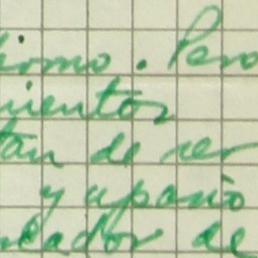 irmo. Pero
mientos
tan de ser
y apoyo
neador de